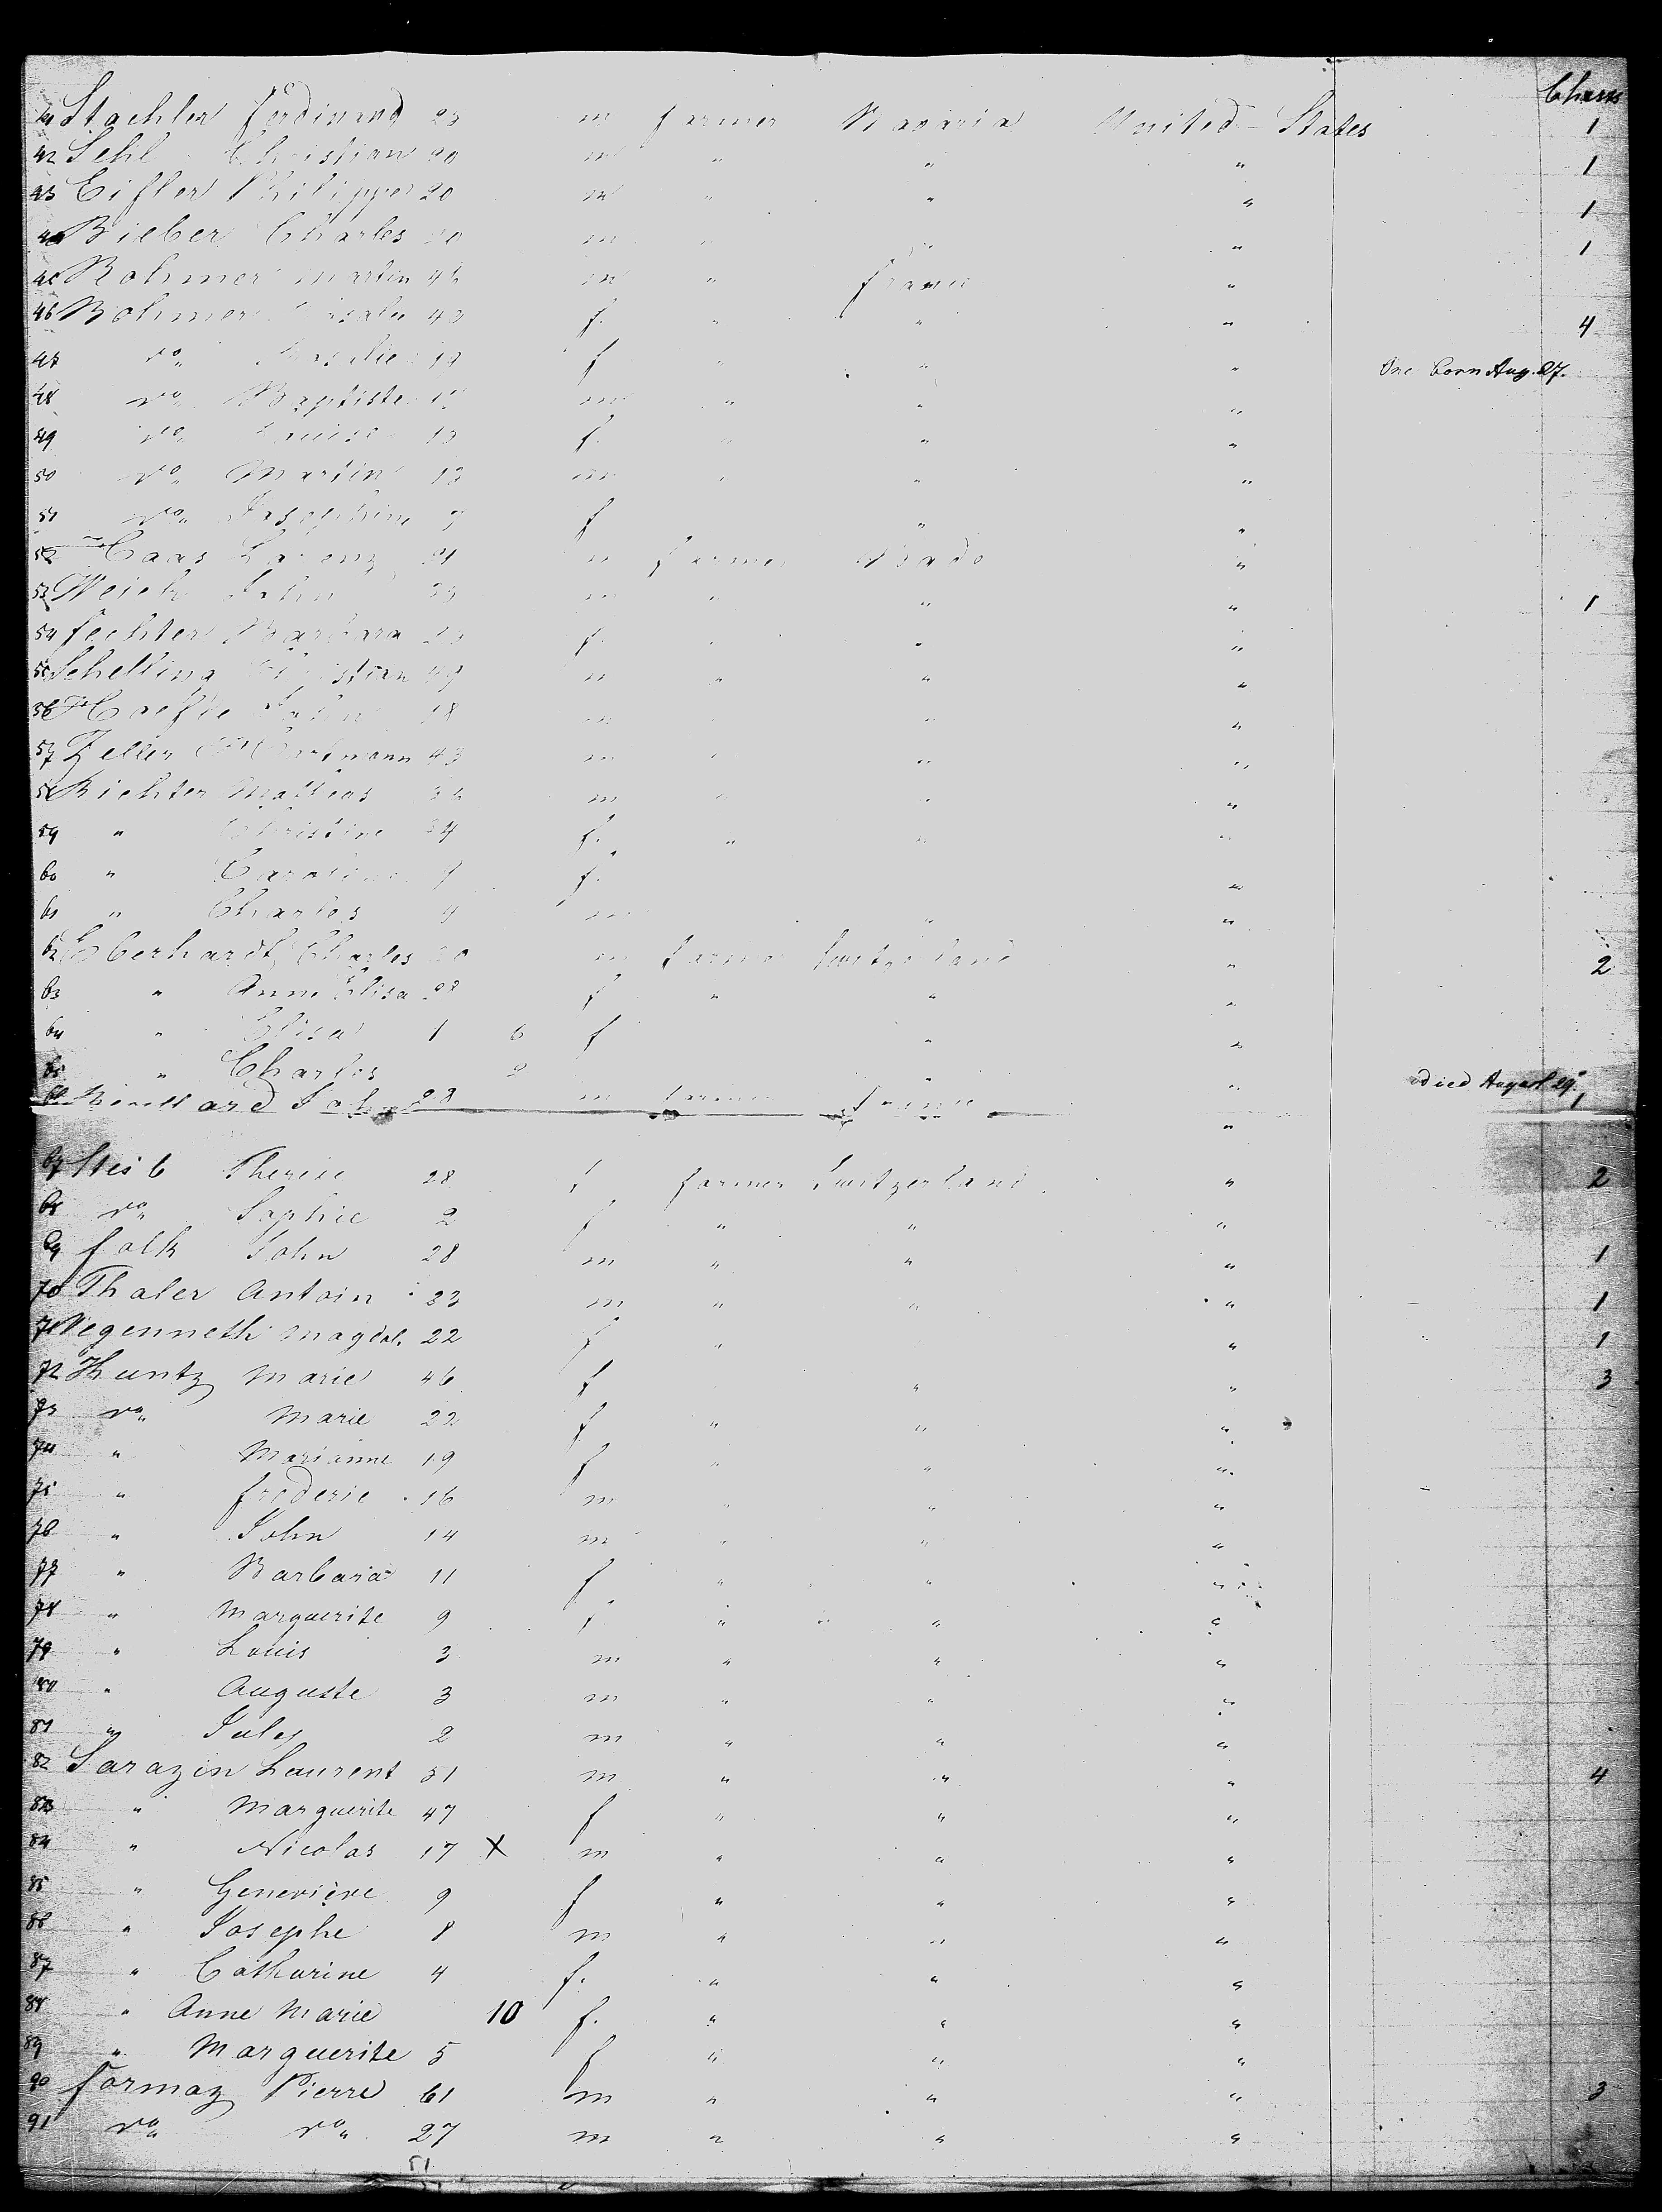 Chests
41 Stachler Ferdinand 23 m farmer Bavaria United States 1
42 Sehl Christian 20 m " " " 1
43 Eifler Philippe 20 m " " " 1
44 Bieber Charles m " " " 1
45 Rohmer Martin m " France "
46 Rohmer f. " " " 4
47 do f " " " One born Aug. 27.
48 do Baptiste m " " "
49 do Louise 13 f. " " "
50 do Martin 13 m " " "
51 do Josephine f " "
52 Caas Lorenz m farmer Bade "
53 John m " " " 1
54 Fechter Barbara f. " " "
55 Schelling Christian 49 m " " "
56 18 m " "
57 Zeller 43 m " " "
58 Richter Mathias m " " "
59 " Christine 34 f. " " "
60 " Caroline f. "
61 " Charles 4 m " "
62 Eberhardt Charles m farmer Switzerland " 2
63 " Anne Elisa 28 f " " "
64 " Elisa 1 6 f " "
65 " Charles 2 " " died August 29.
66 John 28 m farmer France " 1
67 Steib Therese 28 f farmer Switzerland " 2
68 do Sophie 2 f " " "
69 Falk John 28 m " " " 1
70 Thaler Antoin 33 m " " " 1
71 Wegenneth Magdal. 22 f " " 1
72 Kuntz Marie 46 f " " 3
73 do Marie 22 f " " "
74 " Marianne 19 f " " "
75 " Frederic 16 m " " "
76 " John 14 m " " "
77 " Barbara 11 f " " "
78 " Marguerite 9 f " " "
79 " Louis 3 m " " "
80 " Auguste 3 m " " "
81 " Jules 2 m " " "
82 Sarazin Laurent 51 m " " " 4
83 " Marguerite 47 f " " "
84 " Nicolas 17 X m " " "
85 " Geneviève 9 f " " "
86 " Josephe 8 m " " "
87 " Catharine 4 f. " " "
88 " Anne Marie 10 f. " " "
89 " Marguerite 5 f " " "
90 Formaz Pierre 61 m " " " 3
91 do do 27 m " " "
51